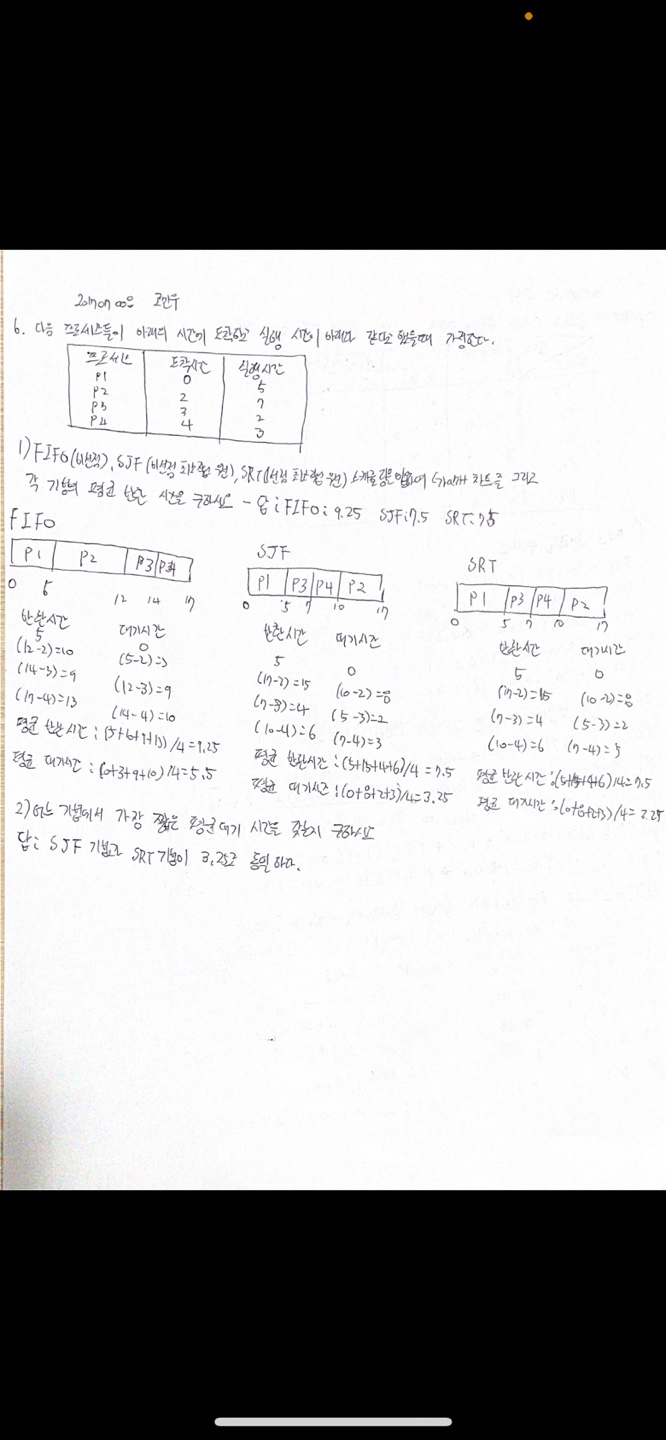 6. 다음 프로세스들이 아래의 시간에 도착하고 실행 시간이 아래와 같다고 했을때 가정한다.
프로세스 도착시간 실행시간
P1 0 5
P2 2 7
P3 3 2
P4 4 3
1) FIFO(비선점), SJF(비선점 최단작업 우선), SRT(선점 최단작업 우선) 스케줄링을 이용하여 Gantt 차트를 그리고
각 기법의 평균 반환 시간을 구하시오 - 답: FIFO: 9.25 SJF: 7.5 SRT: 7.5
FIFO
P1 P2 P3 P4
0 5 12 14 17
반환시간 대기시간
5 0
(12-2)=10 (5-2)=3
(14-3)=9 (12-3)=9
(17-4)=13 (14-4)=10
평균 반환시간: (5+10+9+13)/4=9.25
평균 대기시간: (0+3+9+10)/4=5.5
SJF
P1 P3 P4 P2
0 5 7 10 17
반환시간 대기시간
5 0
(17-2)=15 (10-2)=8
(7-3)=4 (5-3)=2
(10-4)=6 (7-4)=3
평균 반환시간: (5+15+4+6)/4=7.5
평균 대기시간: (0+8+2+3)/4=3.25
SRT
P1 P3 P4 P2
0 5 7 10 17
반환시간 대기시간
5 0
(17-2)=15 (10-2)=8
(7-3)=4 (5-3)=2
(10-4)=6 (7-4)=3
평균 반환시간: (5+15+4+6)/4=7.5
평균 대기시간: (0+8+2+3)/4=3.25
2) 어느 기법에서 가장 짧은 평균대기 시간을 갖는지 구하시오
답: SJF 기법과 SRT기법이 3.25로 동일하다.